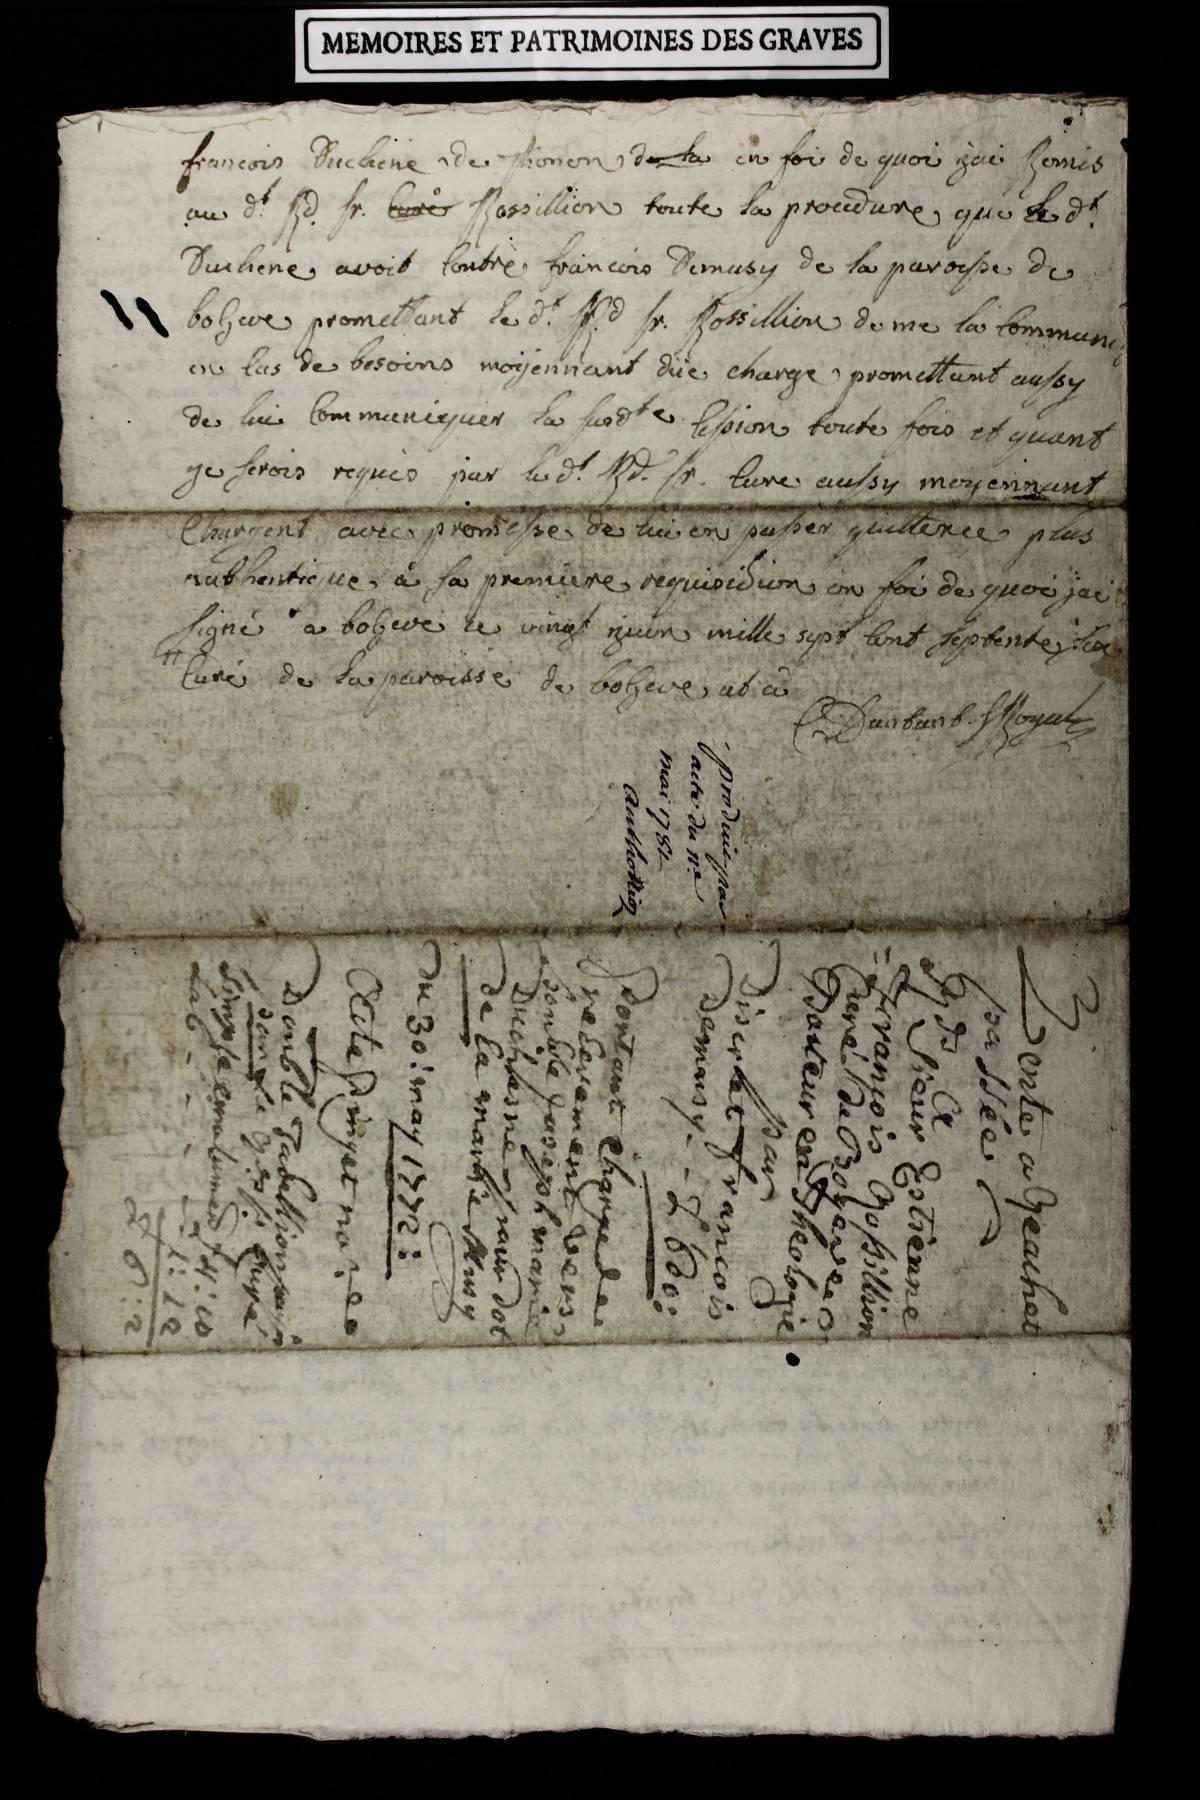 MEMOIRES ET PATRIMOINES DES GRAVES
francois Duchene de thonon de la en foi de quoi jai Remis
au dt. Rd. sr. Curé Rossillion toute la procedure que le dt.
Duchene avoit Contre francois Demusy de la paroisse de
bogeve promettant le dt. Rd sr. Rossillion de me la Communi
en Cas de besoins moyennant düe charge promettant aussy
de lui Communiquer la susdte Cession toute fois et quant
je serois requis par le dt. Rd. sr. Cure aussy moyennant
Chargent avec promesse de lui en passer quittence plus
authentique a sa premiere requisidion en foi de quoi jai
signé a bogeve ce vingt juin mille sept Cent septente
Curé de la paroisse de bogeve at a
produit par
acte du
mai 1782
Vente a Geachet
passée
a
Sieur Estienne
françois Rossillion
Curé de Bogeve
Docteur en Theologie
par
Discret francois
Demusy - L 600:
portant charge de
relevement vers
honble Joseph marie
Duchesne pour dot
de la marie Musy
Du 30: may 1772:
Acte Singet no:re
Double Tabellion paye
par le Rd sr Curé
Simple emolument
Tab